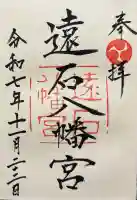 奉拝
遠石八幡宮
遠石八幡宮
令和七年十一月二三日